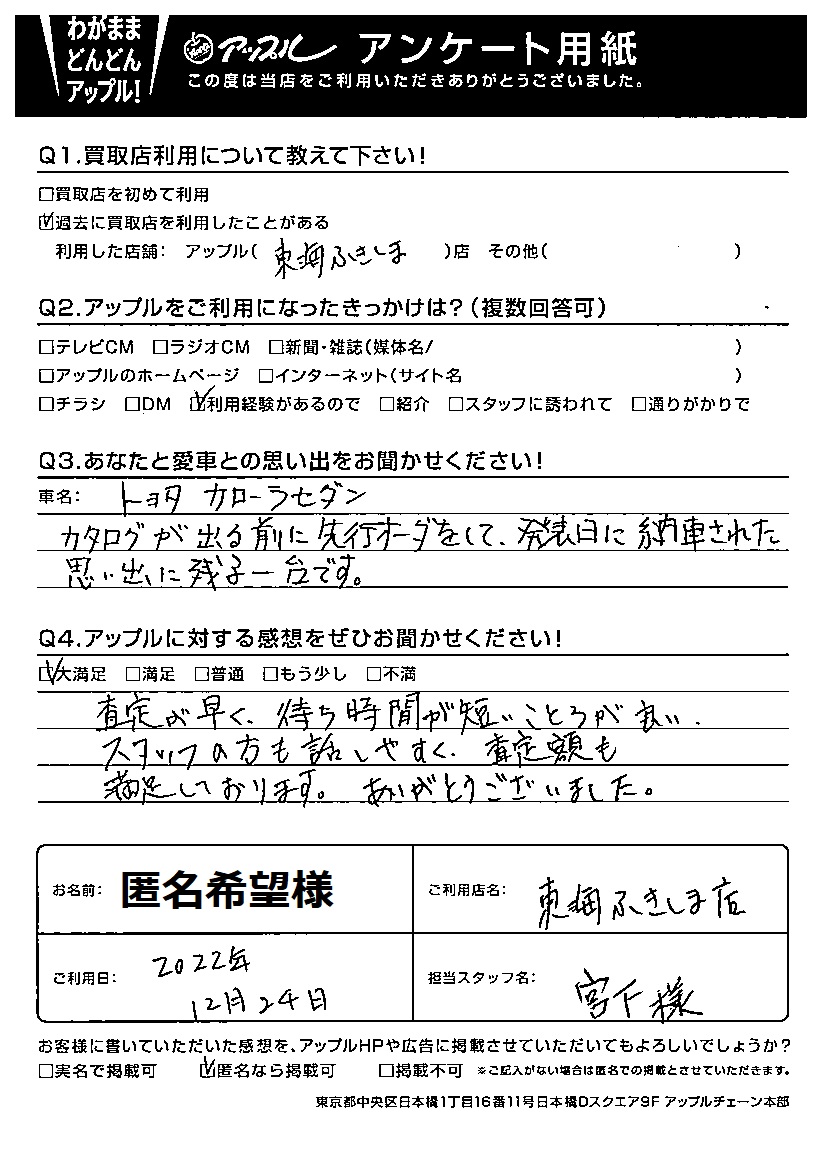 わがまま
どんどん
アップル!
Apple アップル アンケート用紙
この度は当店をご利用いただきありがとうございました。
Q1.買取店利用について教えて下さい!
□買取店を初めて利用
☑過去に買取店を利用したことがある
利用した店舗: アップル( 東海ふきしま )店 その他( )
Q2.アップルをご利用になったきっかけは?(複数回答可)
□テレビCM □ラジオCM □新聞・雑誌(媒体名/ )
□アップルのホームページ □インターネット(サイト名 )
□チラシ □DM ☑利用経験があるので □紹介 □スタッフに誘われて □通りがかりで
Q3.あなたと愛車との思い出をお聞かせください!
車名: トヨタ カローラセダン
カタログが出る前に先行オーダをして、発表日に納車された
思い出に残る一台です。
Q4.アップルに対する感想をぜひお聞かせください!
☑大満足 □満足 □普通 □もう少し □不満
査定が早く、待ち時間が短いところが良い.
スタッフの方も話しやすく、査定額も
満足しております。ありがとうございました。
お名前: 匿名希望様
ご利用店名: 東海ふきしま店
ご利用日: 2022年
12月24日
担当スタッフ名: 宮下様
お客様に書いていただいた感想を、アップルHPや広告に掲載させていただいてもよろしいでしょうか?
□実名で掲載可 ☑匿名なら掲載可 □掲載不可 ※ご記入がない場合は匿名での掲載とさせていただきます。
東京都中央区日本橋1丁目16番11号日本橋Dスクエア9F アップルチェーン本部